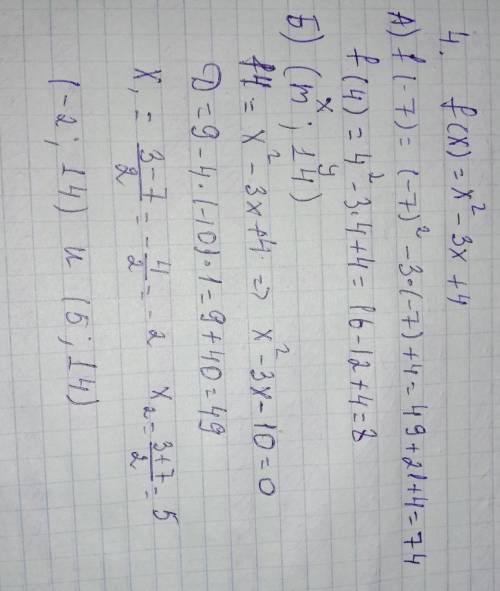 4. f(x) = x² - 3x + 4
А) f(-7) = (-7)² - 3·(-7) + 4 = 49 + 21 + 4 = 74
f(4) = 4² - 3·4 + 4 = 16 - 12 + 4 = 8
Б) (m; 14)
x y
14 = x² - 3x + 4 => x² - 3x - 10 = 0
D = 9 - 4·(-10)·1 = 9 + 40 = 49
x₁ = (3-7)/2 = -4/2 = -2 x₂ = (3+7)/2 = 5
(-2; 14) и (5; 14)